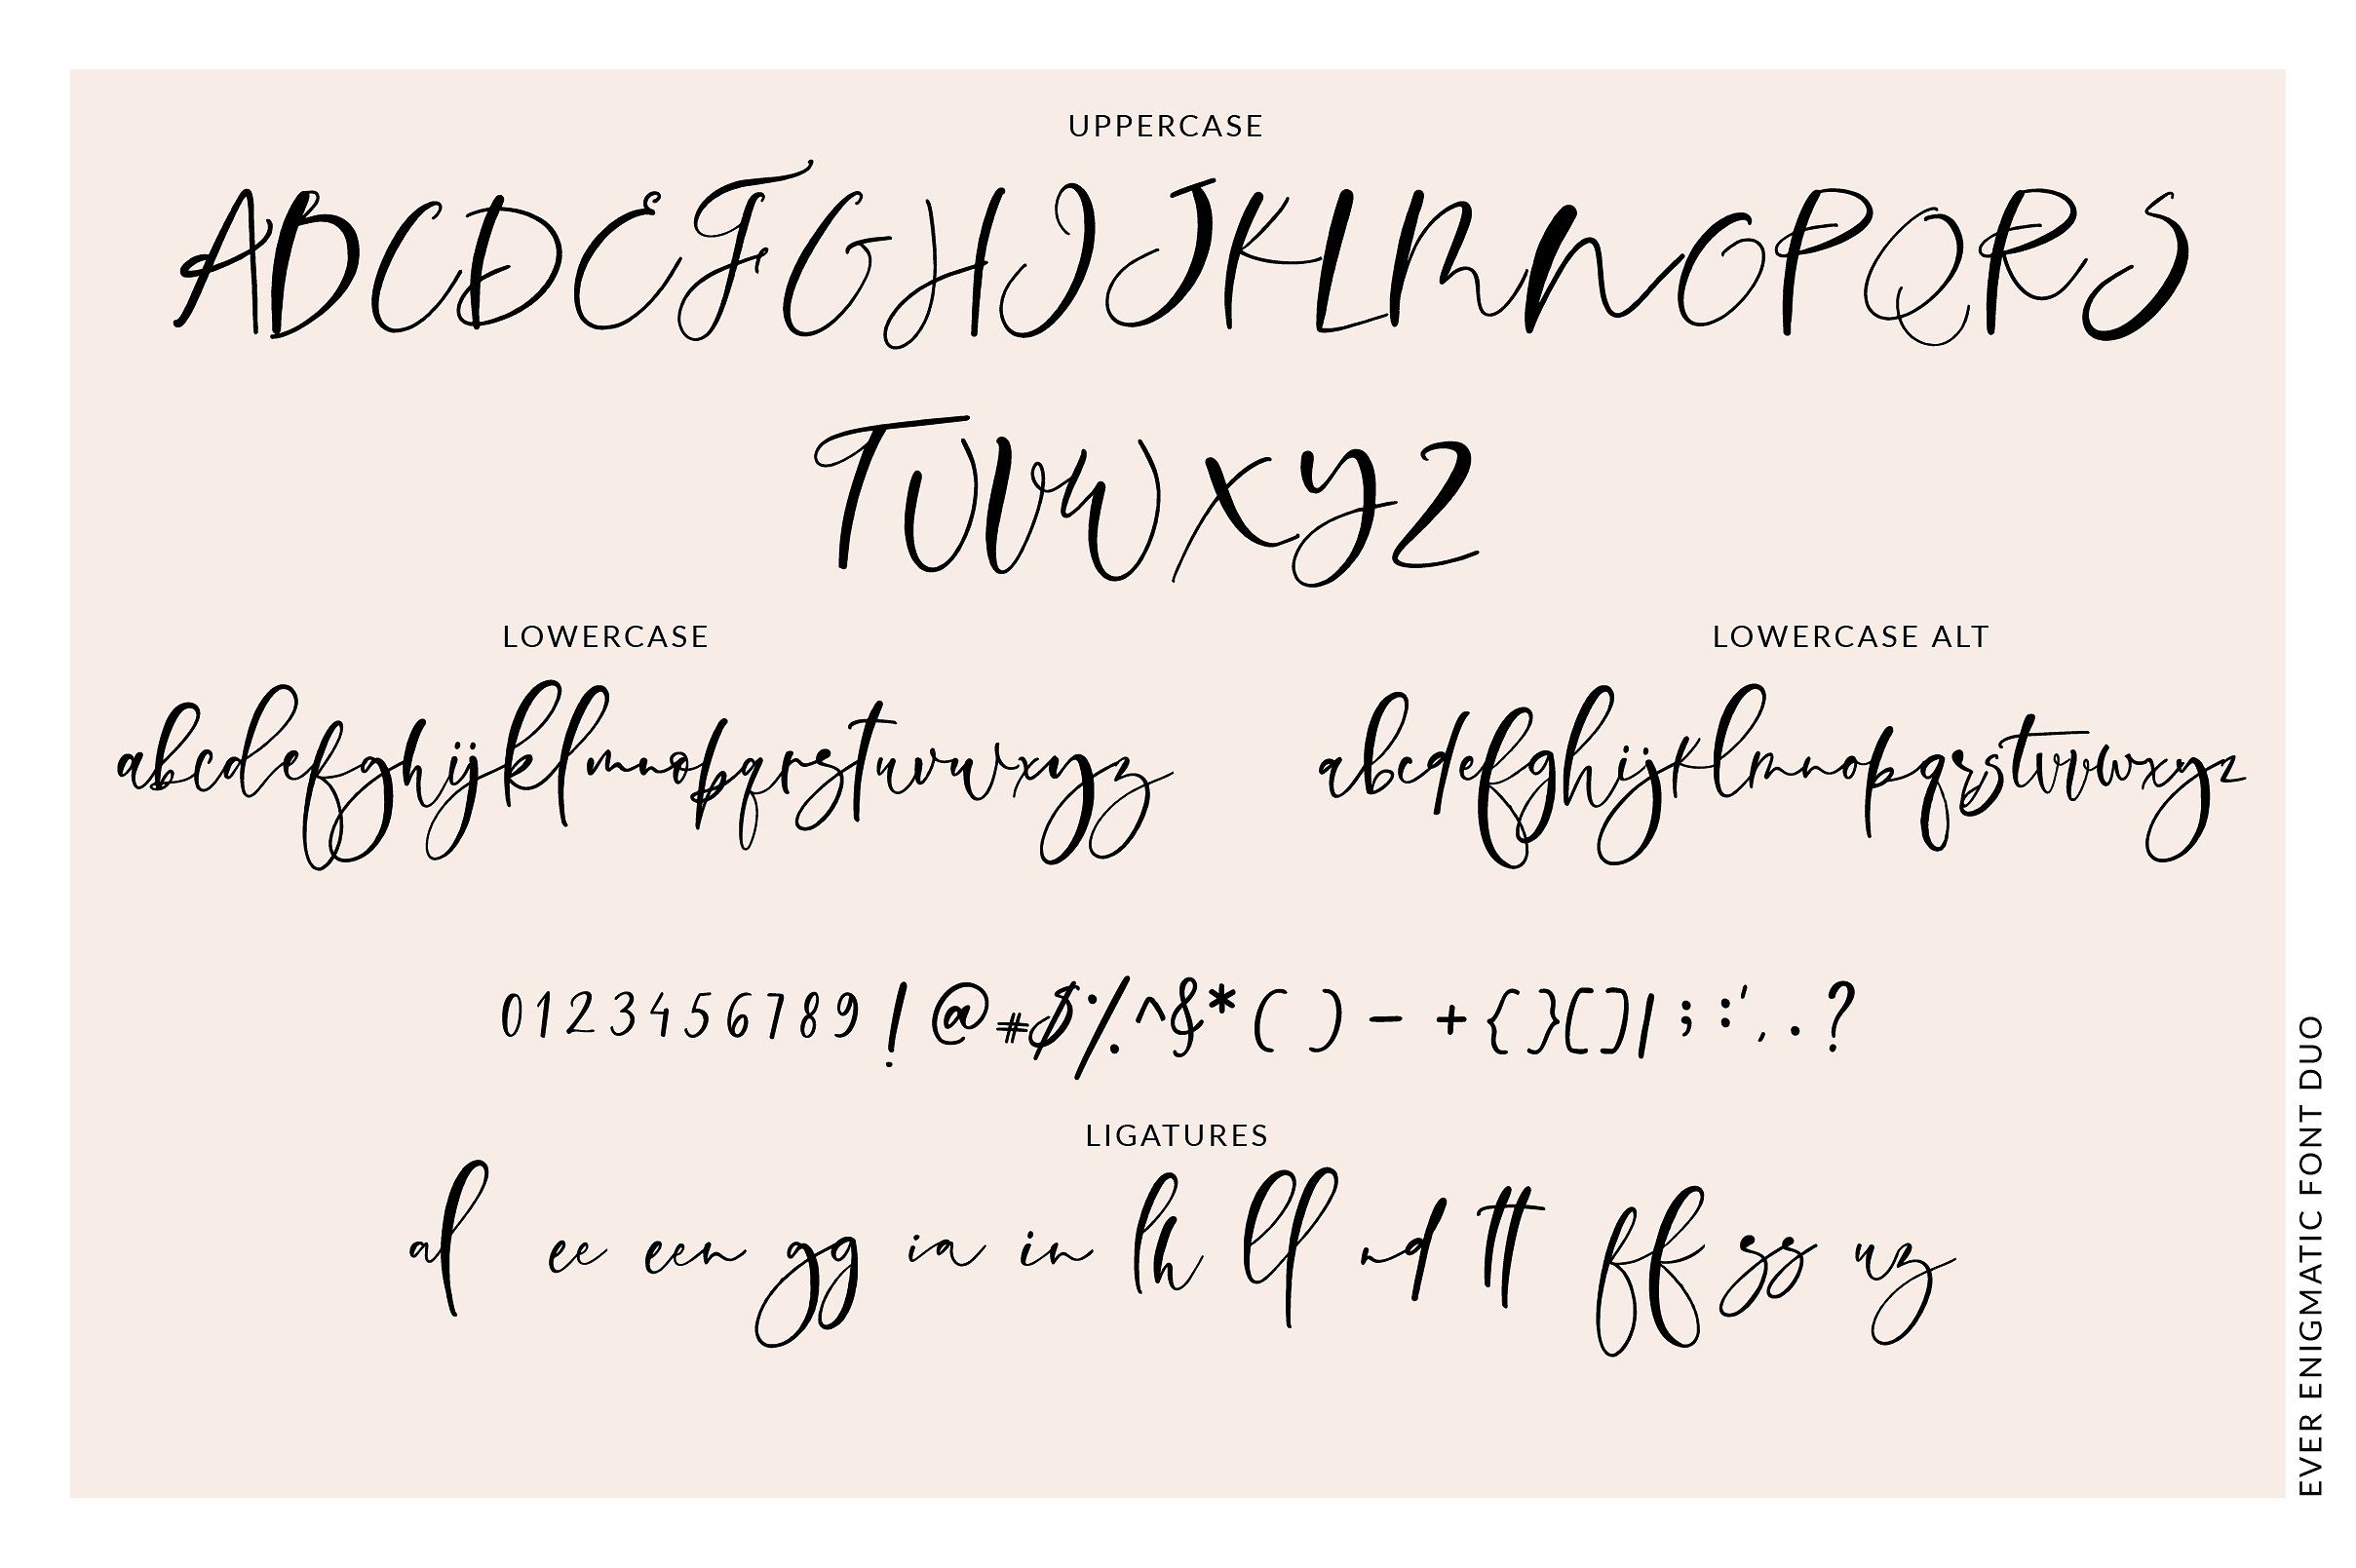 UPPERCASE
ABCDEFGHIJKLMNOPQRS
TUVWXYZ
LOWERCASE
LOWERCASE ALT
abcdefghijklmnopqrstuvwxyz
abcdefghijklmnopqrstuvwxyz
0123456789!@#$%^&*()-+{}[]|;:',.?
LIGATURES
al ee een gg ia in lh ll nd tt ff ss uz
EVER ENIGMATIC FONT DUO